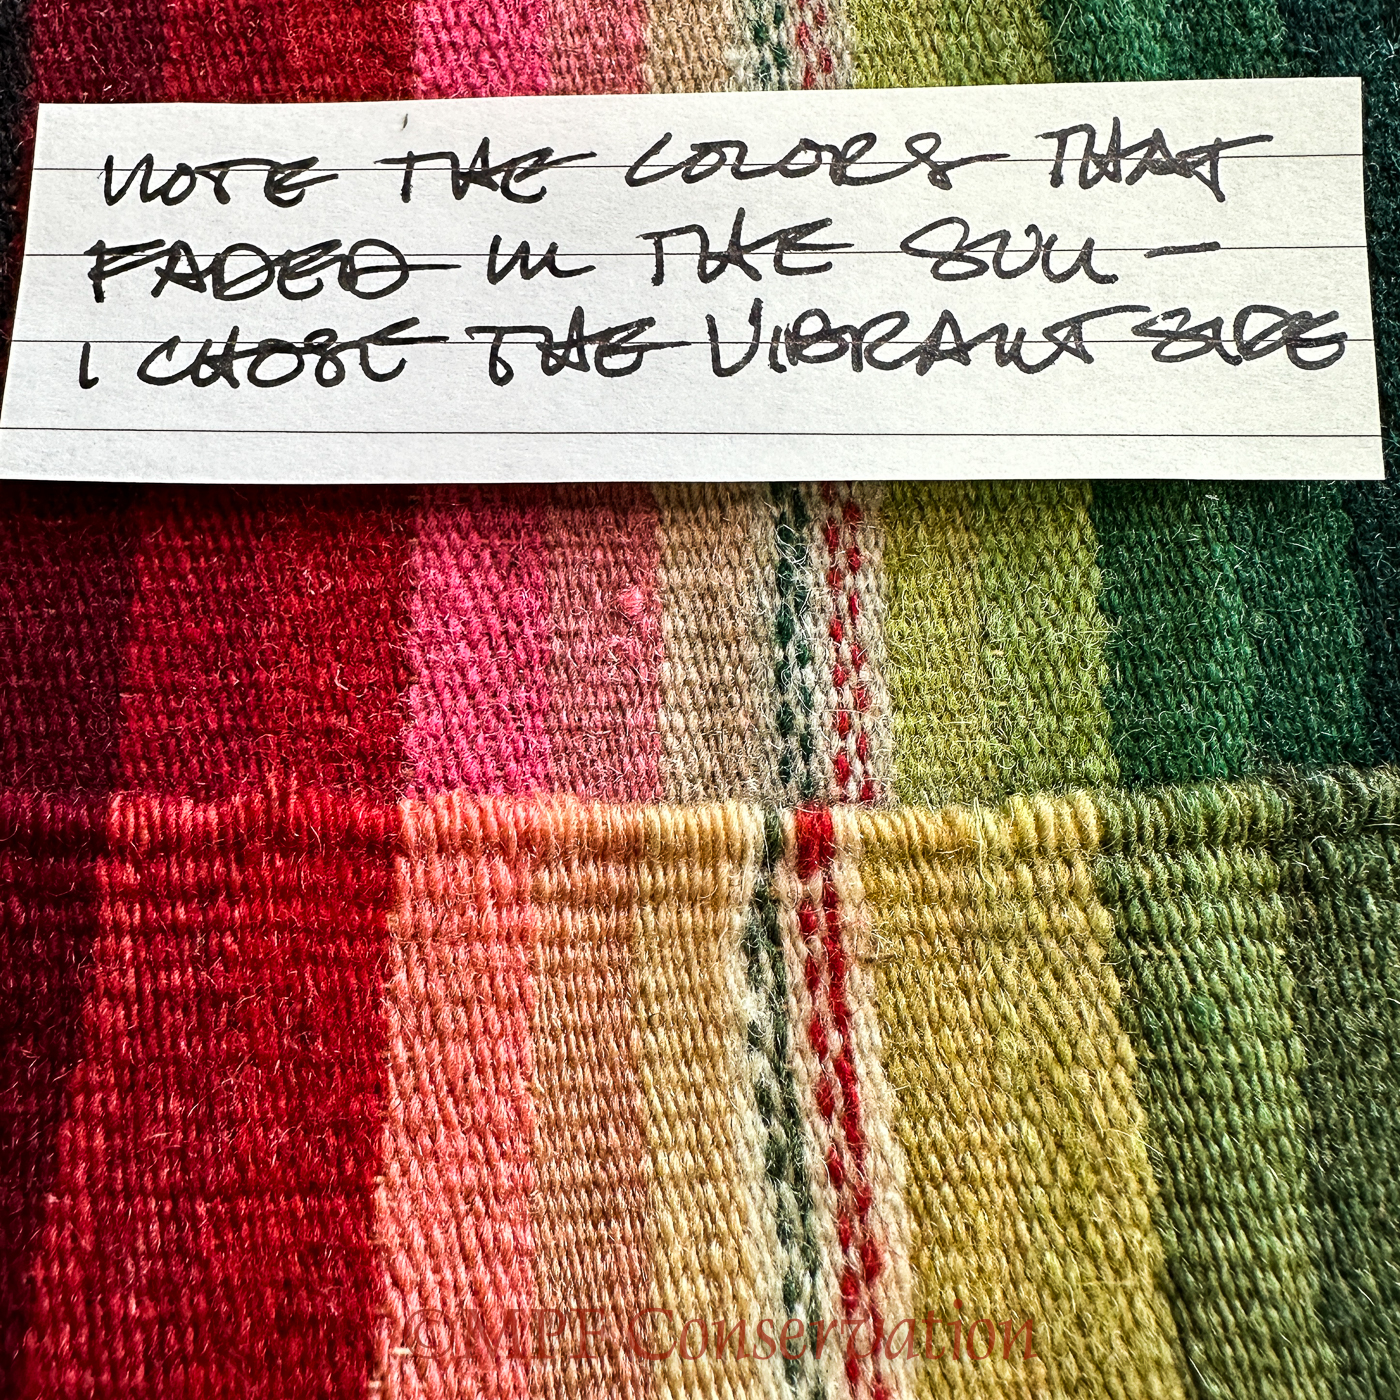 NOTE THE COLORS THAT
FADED IN THE SUN —
I CHOSE THE VIBRANT SIDE
©MPF Conservation